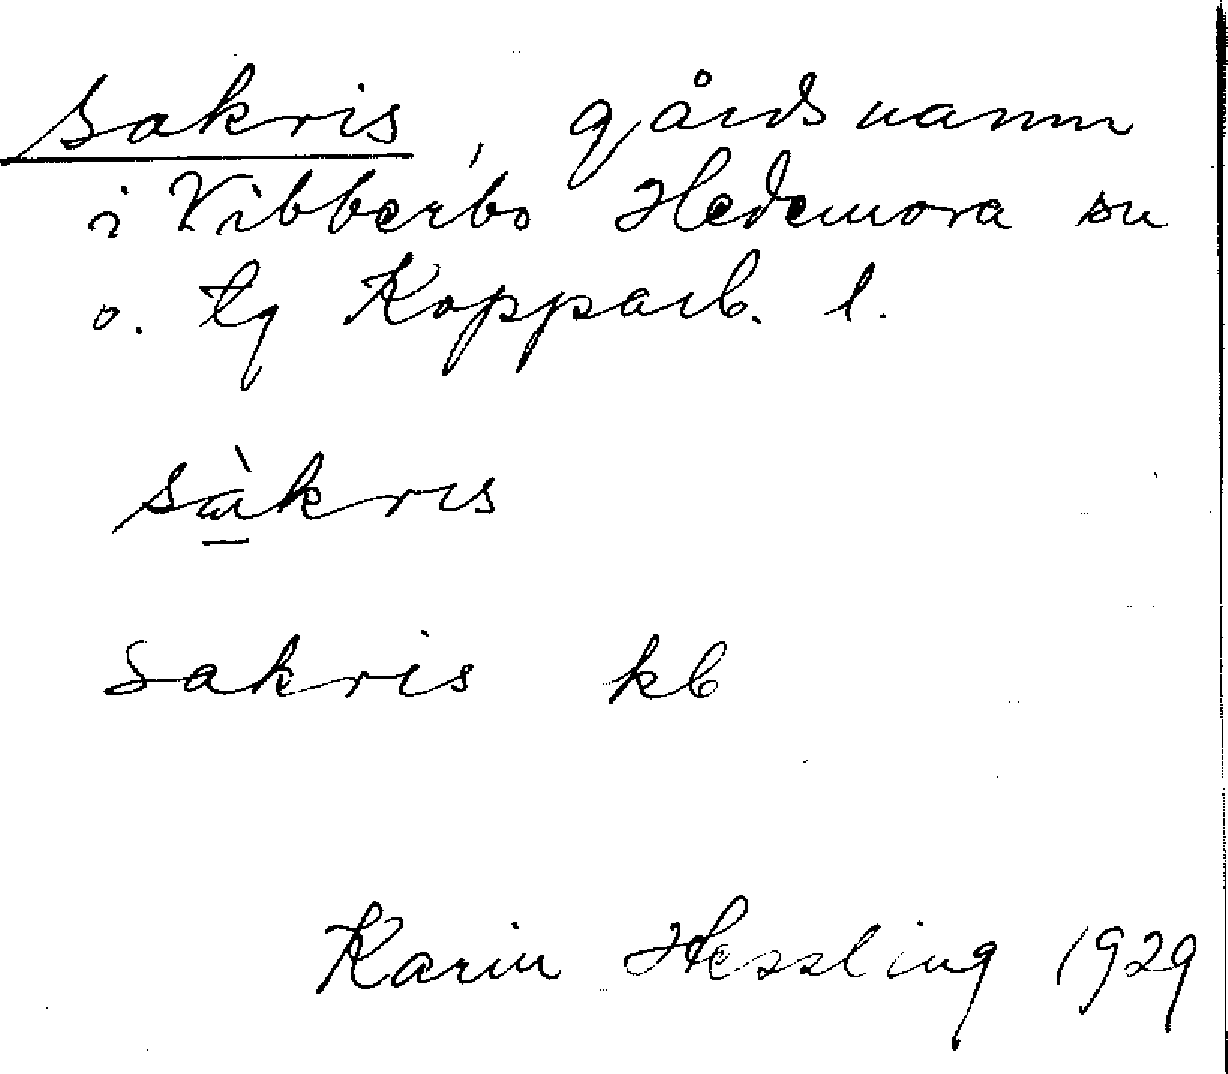 Sakris, gårdsnamn
i Vibberbo Hedemora sn
o. tg Kopparb. l.
sàkris
Sakris kb
Karin Hessling 1929